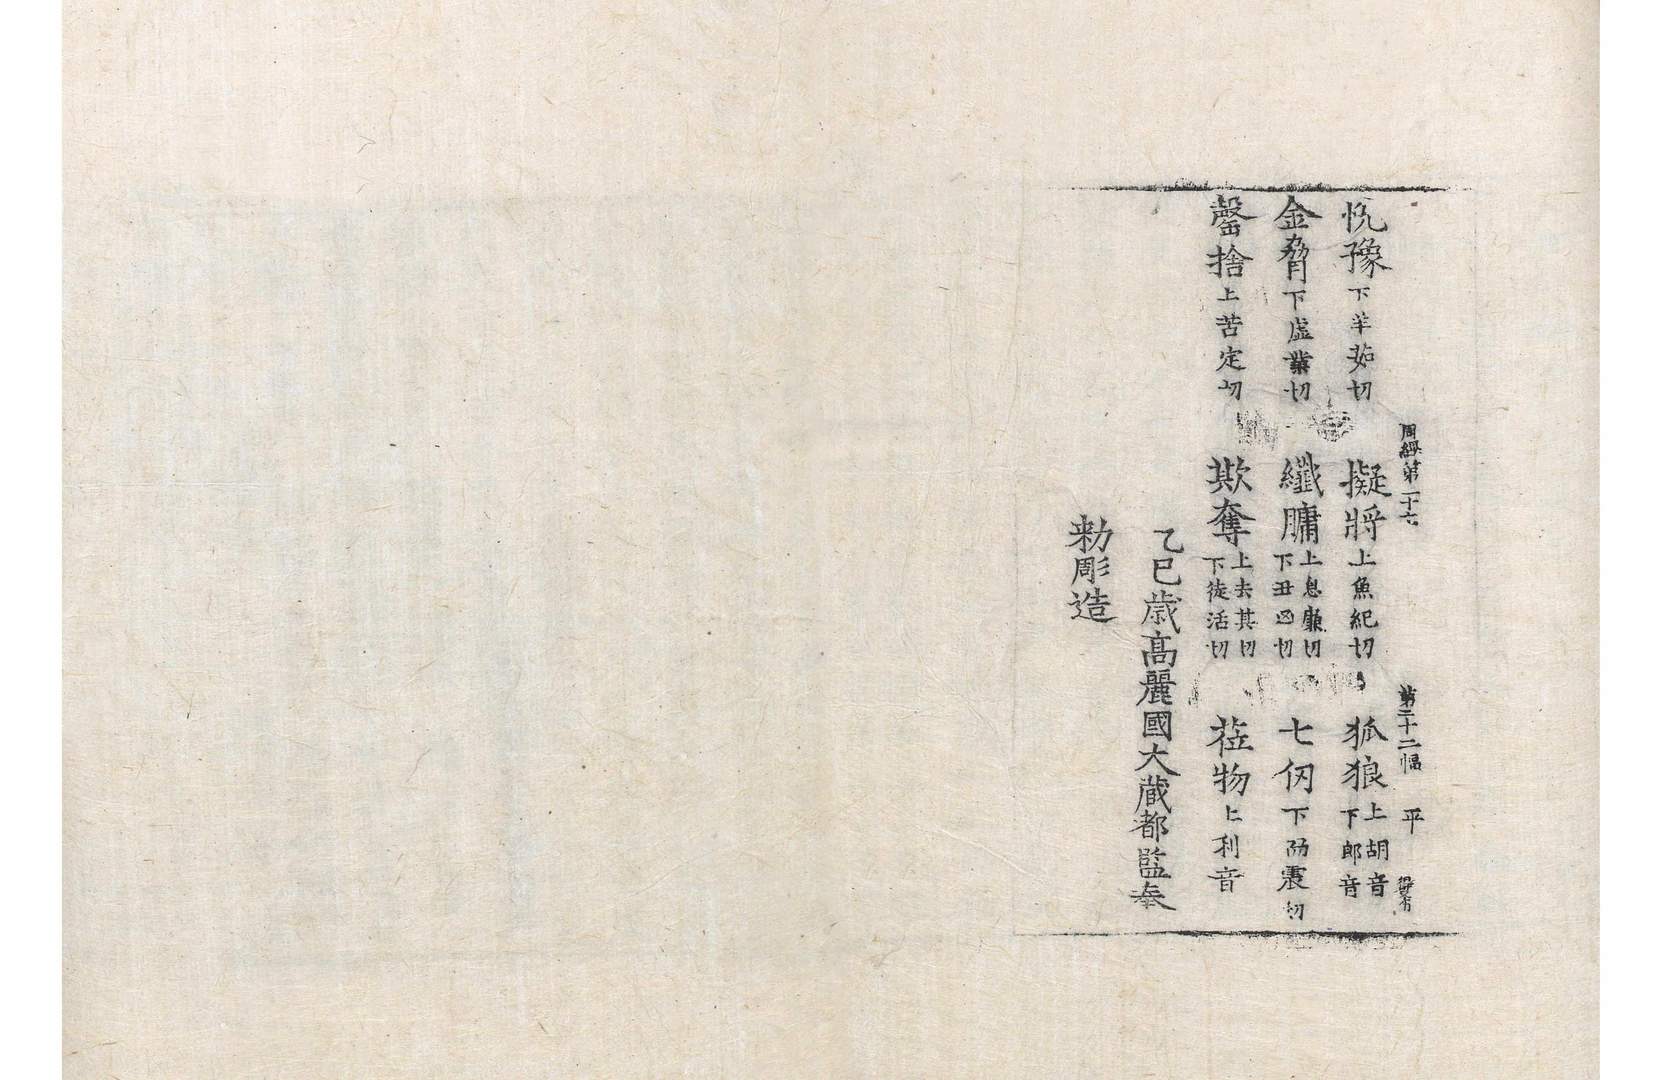 周經第二十六 第二十二幅 平
怳豫下羊茹切 擬將上魚紀切 狐狼上胡音下郎音
金脅下虛業切 纖𦟛上息廉切下丑凶切 七仞下而震切
罄捨上苦定切 欺奪上去其切下徒活切 莅物上利音
乙巳歲高麗國大藏都監奉
勑彫造